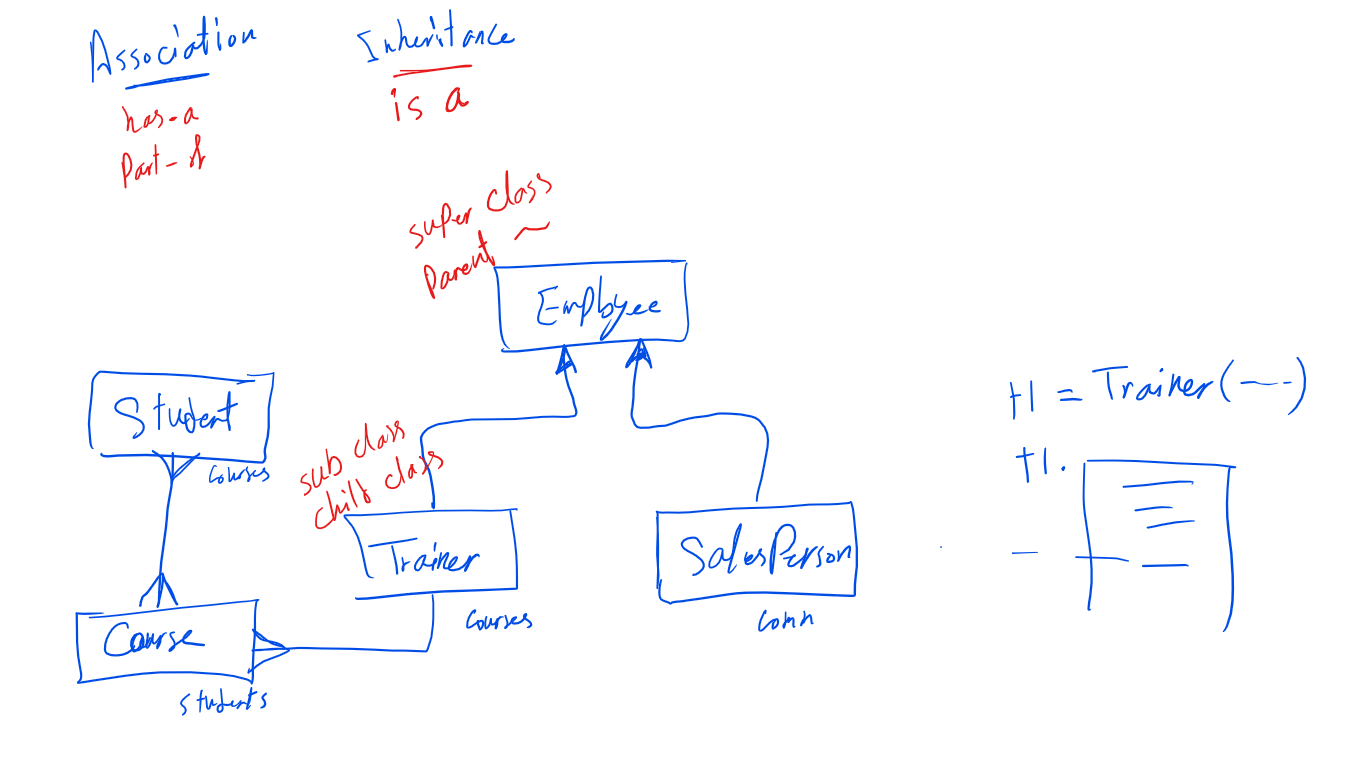 Association
has-a
Part-of
Inheritance
is a
super class
Parent ~
Employee
Student
Courses
sub class
child class
Trainer
Courses
SalesPerson
Comm
Course
students
t1 = Trainer(----)
t1.